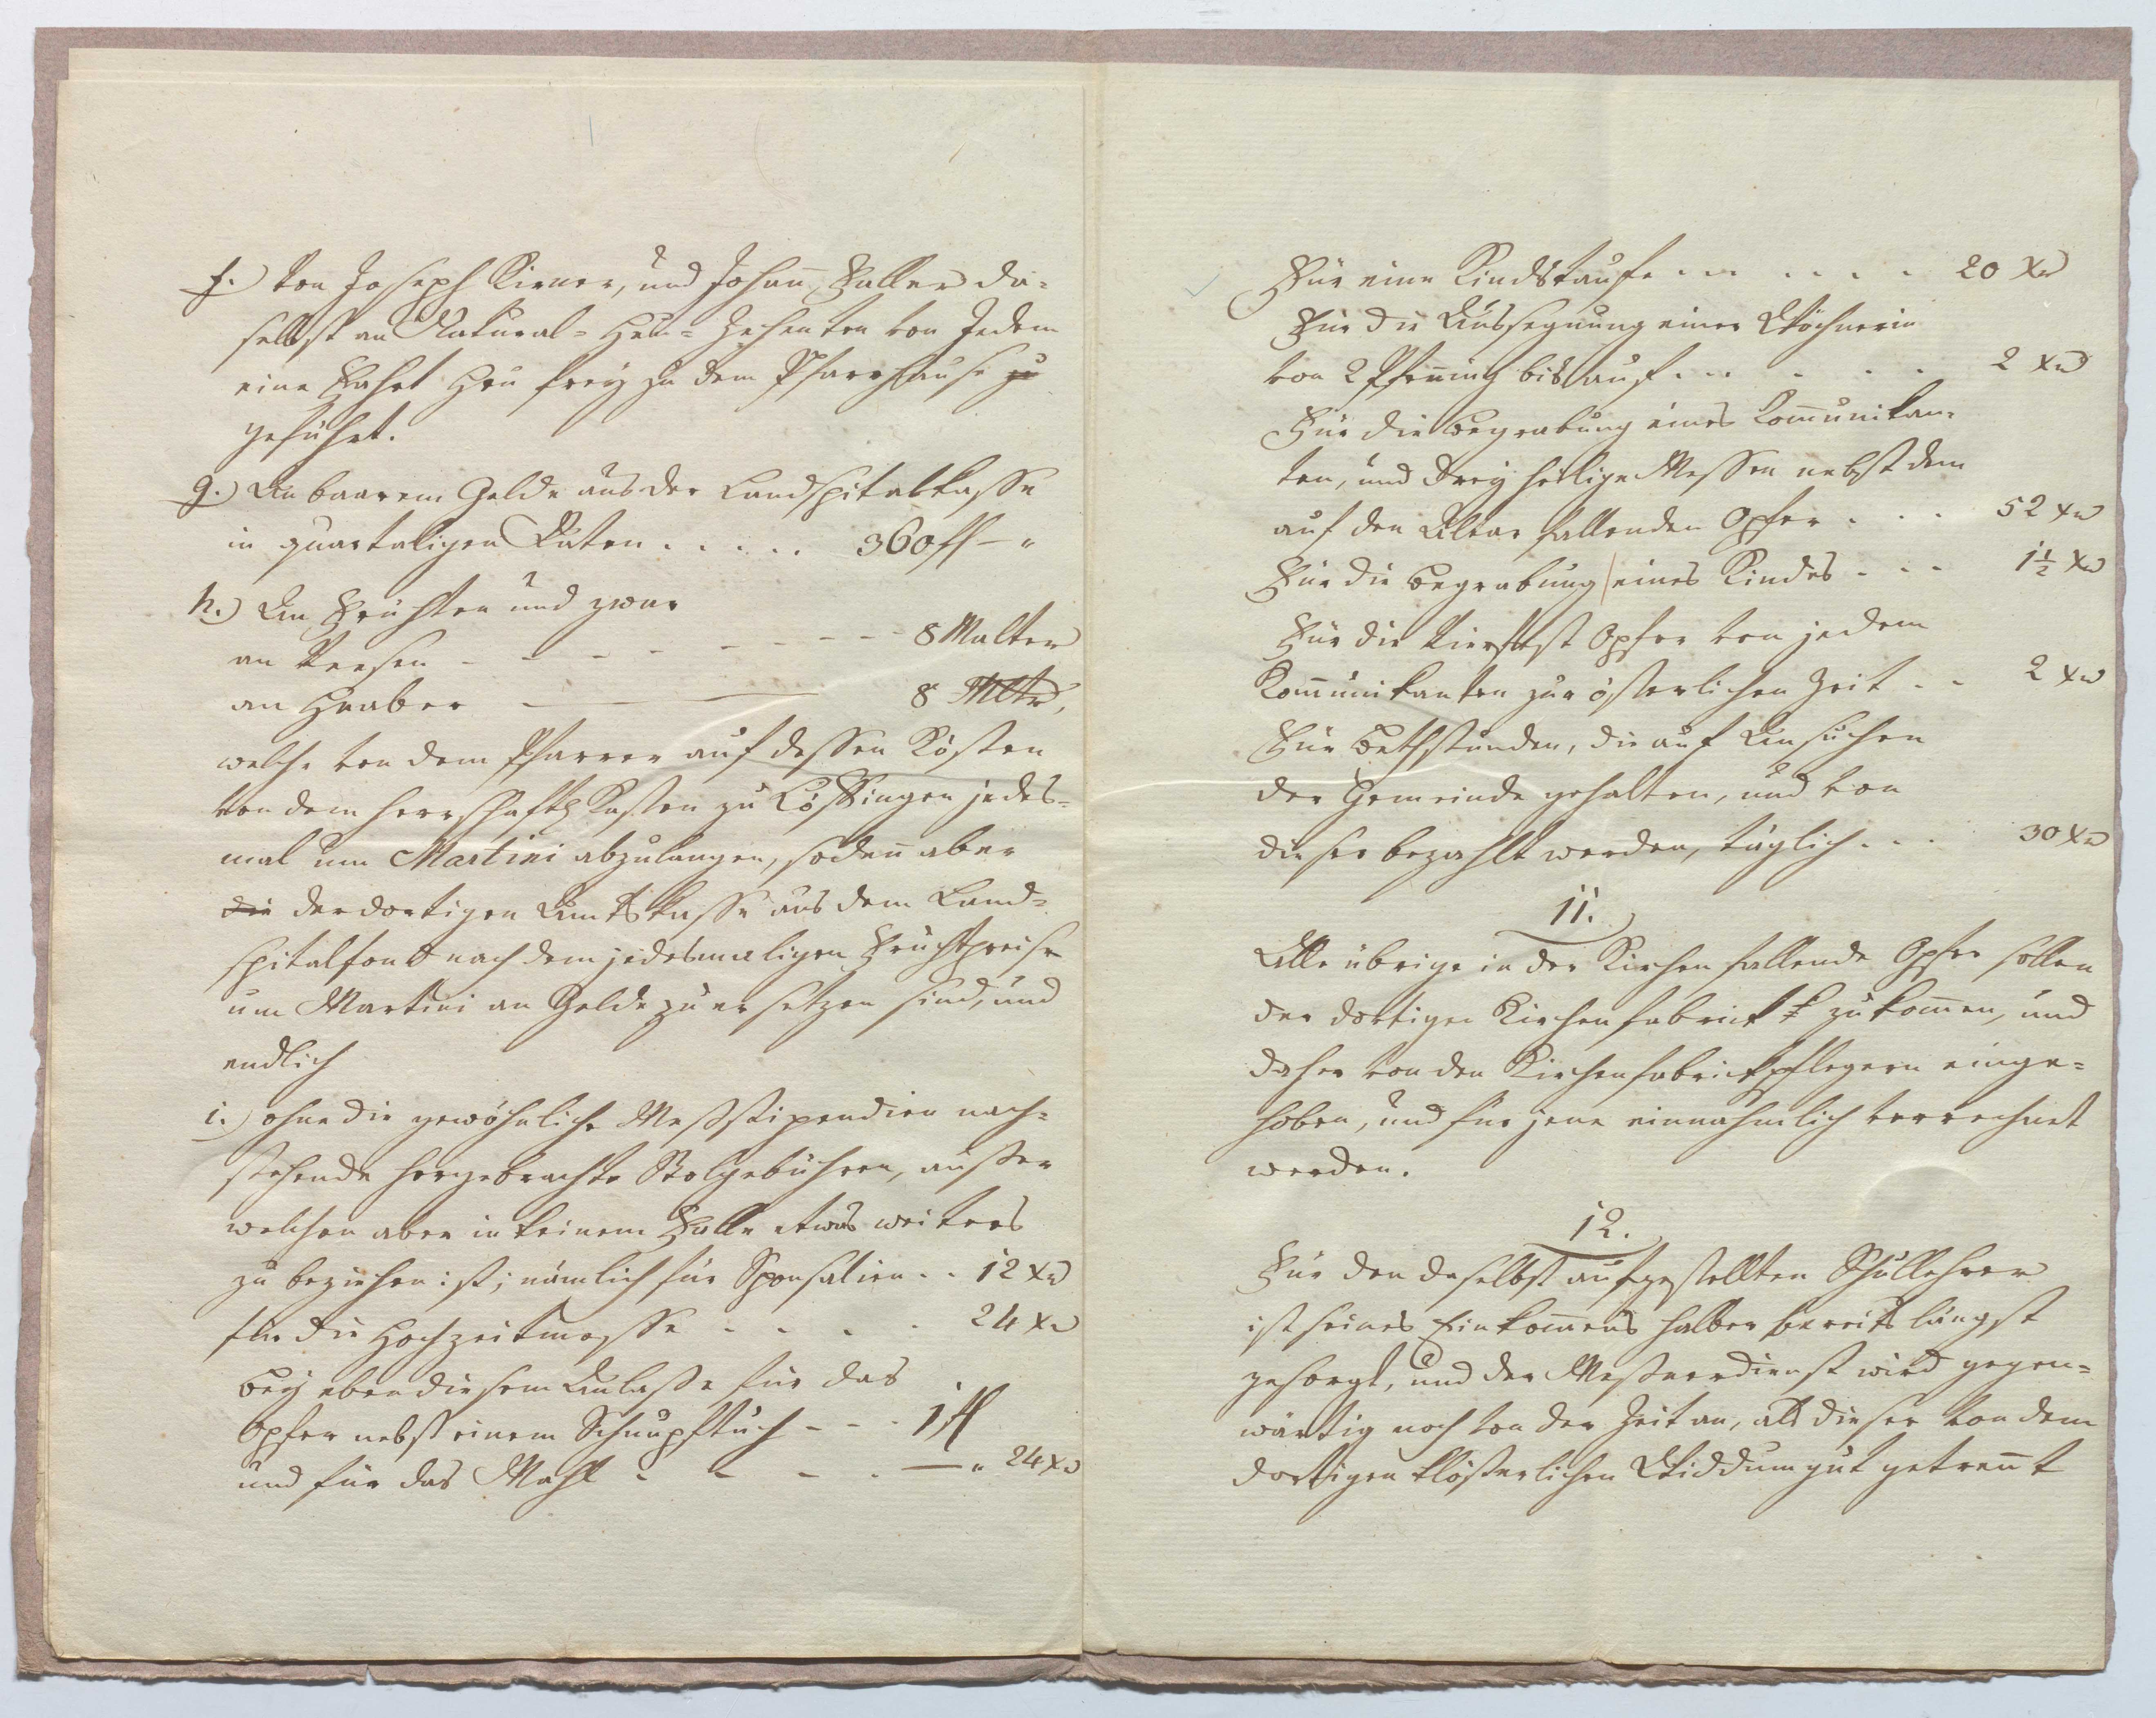 f.) Von Joseph Kirner, und Johann Faller da-
selbst an Natural- Heu- Zehenten von Jedem
eine Fahrt Heu frey zu dem Pfarrhause zu
geführt.
g.) An baarem Gelde aus der Landspitalkasse
in quartaligen Raten . . . . . 360 fl – „
h.) An Früchten und zwar
an Veesen - - - - - - - - 8 Malter
an Haaber - — — 8 Mltr,
welche von dem Pfarrer auf dessen Kosten
von dem herrschaftl Kasten zu Löffingen jedes-
mal um Martini abzulangen, sodann aber
die der dortigen Amtskasse aus dem Land-
spitalfond nach dem jedesmaligen Fruchtpreise
um Martini an Gelde zu ersetzen sind, und
endlich
i.) ohne die gewöhnliche Meßstipendien nach-
stehende hergebrachte Stolgebühren, ausser
welchen aber in keinem Falle etwas weiters
zu beziehen ist; nämlich für Sponsalien . . 12 xr
für die Hochzeitmesse - - . . 24 xr
Bey eben diesem Anlasse für das
Opfer nebst einem Schnupftuch - - . 1 fl
und für das Mahl - - - . — „ 24 xr
Für eine Kindstaufe . . . . . . . 20 xr
Für die Aussegnung einer Wöchnerin
von 2 Pfenning bis auf . . . . . . 2 xr
Für die Begrabung eines Kommunikan-
ten, und drey heilige Messen nebst dem
auf den Altar fallenden Opfer . . . 52 xr
Für die Begrabung eines Kindes - - - 1½ xr
Für die Vierfest Opfer von jedem
Kommunikanten zur österlichen Zeit - - 2 xr
Für Bethstunden, die auf Ansuchen
der Gemeinde gehalten, und von
dieser bezahlt werden, täglich . . . 30 xr
11.
Alle übrige in der Kirchen fallende Opfer sollen
der dortigen Kirchenfabrick zukommen, und
daher von den Kirchenfabrickpflegern einge-
hoben, und für jene einnahmlich verrechnet
werden.
12.
Für den daselbst aufgestellten Schullehrer
ist seines Einkommens halber bereits längst
gesorgt, und der Meßnerdienst wird gegen-
wärtig noch von der Zeit an, als dieser von dem
dortigen klösterlichen Widdumgut getrennt